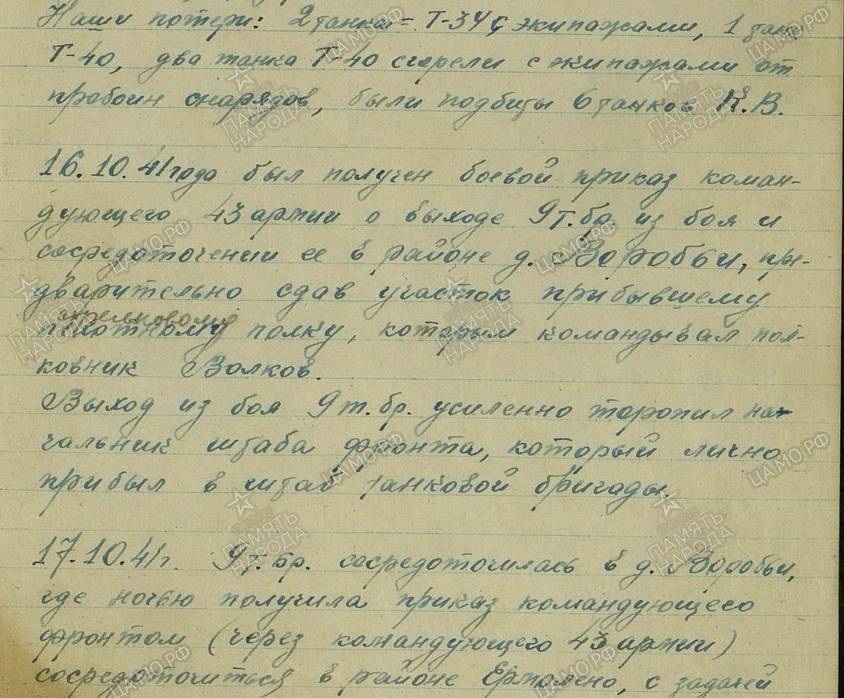 Наши потери: 2 танка = Т-34 с экипажами, 1 танк
Т-40, два танка Т-40 сгорели с экипажами от
пробоин снарядов, были подбиты 6 танков К.В.
16.10.41 года был получен боевой приказ коман-
дующего 43 армии о выходе 9т.бр. из боя и
сосредоточении ее в районе д. Воробьи, пре-
дварительно сдав участок прибывшему
стрелковому
пехотному полку, которым командывал пол-
ковник Волков.
Выход из боя 9т.бр. усиленно торопил на-
чальник штаба фронта, который лично
прибыл в штаб танковой бригады.
17.10.41г. 9т.бр. сосредоточилась в д. Воробьи,
где ночью получила приказ командующего
фронтом (через командующего 43 армии)
сосредоточиться в районе Ермолено, с задачей
ПАМЯТЬ НАРОДА
ЦАМО.РФ